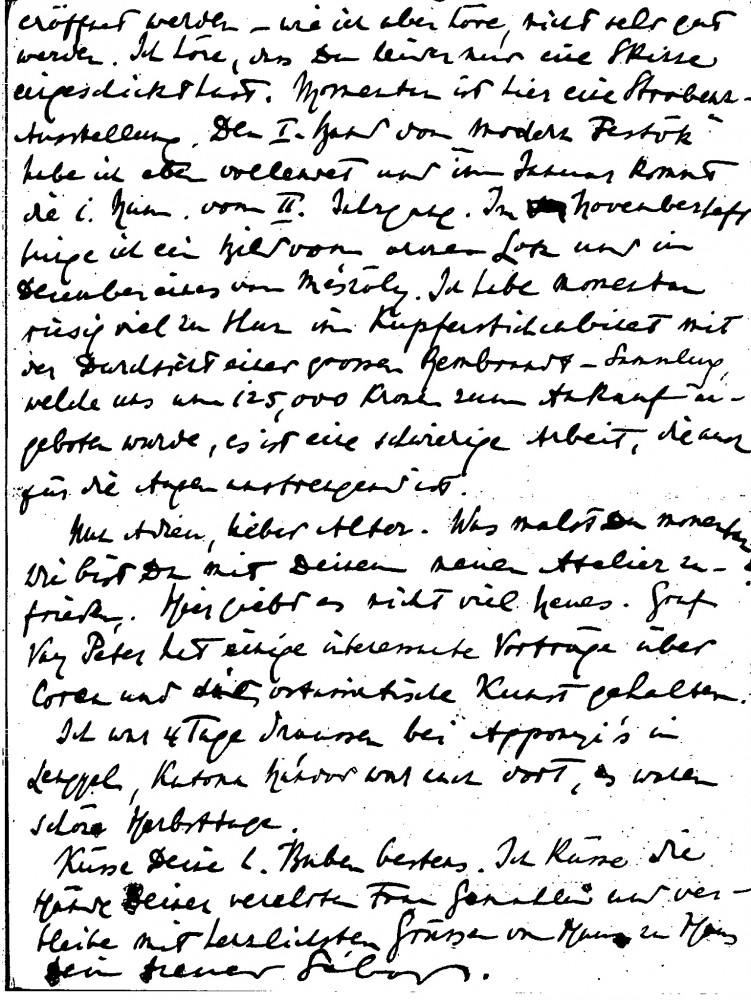 eröffnet werden – wie ich aber höre, nicht sehr gut
werden. Ich höre, dass Du leider nur eine Skizze
eingeschickt hast. Momentan ist hier eine
Ausstellung. Den I. Band von Modern
habe ich eben vollendet und im Januar kommt
die 1. Num. vom II. Jahrgang. Im Novemberheft
bringe ich ein Bild vom armen Lotz und im
Dezember eines von Mészöly. Ich habe momentan
riesig viel zu thun im Kupferstichcabinet mit
der Durchsicht einer grossen Rembrandt – Sammlung,
welche uns um 125,000 Kronen zum Ankauf an-
geboten wurde, es ist eine schwierige Arbeit, die auch
für die Augen anstrengend ist.
Nun Adieu, lieber Alter. Was malst Du momentan
Wie bist Du mit Deinem neuen Atelier zu-
frieden. Hier giebt es nicht viel Neues. Graf
Vay Peter hat einige interessante Vorträge über
Corea und die ostasiatische Kunst gehalten.
Ich war 4 Tage draussen bei Apponyi's in
Lengyel, Katona Nándor war auch dort, es waren
schöne Herbsttage.
Küsse Deine l. Buben bestens. Ich küsse die
Hände Deiner verehrten Frau Gemahlin und ver-
bleibe mit herzlichsten Grüssen von Haus zu Haus
Dein treuer Gábor.